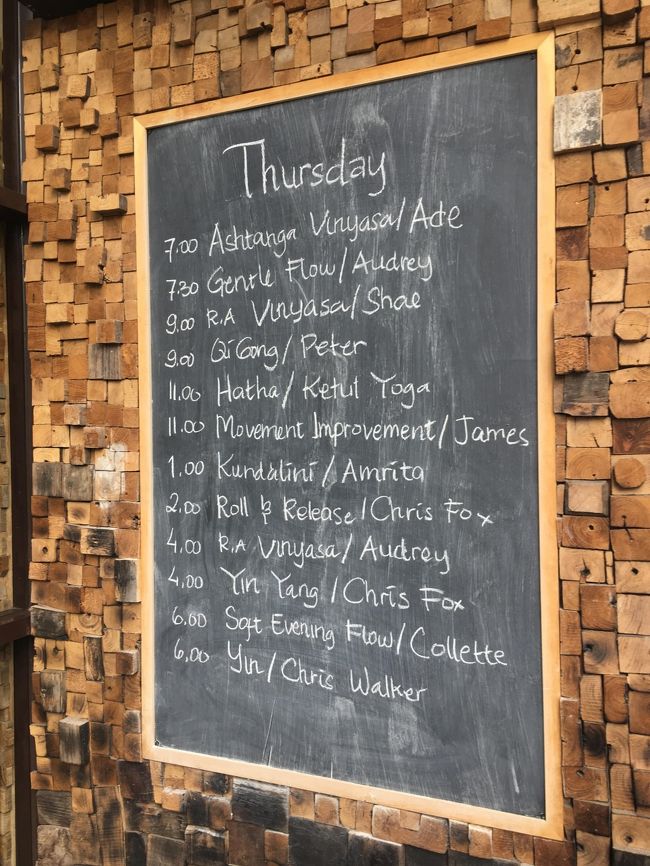 Thursday
7.00 Ashtanga Vinyasa/Ade
7.30 Gentle Flow/Audrey
9.00 R.A Vinyasa/Shae
9.00 Qi Gong/Peter
11.00 Hatha/Ketut Yoga
11.00 Movement Improvement/James
1.00 Kundalini/Amrita
2.00 Roll & Release/Chris Fox
4.00 R.A Vinyasa/Audrey
4.00 Yin Yang/Chris Fox
6.00 Soft Evening Flow/Collette
6.00 Yin/Chris Walker